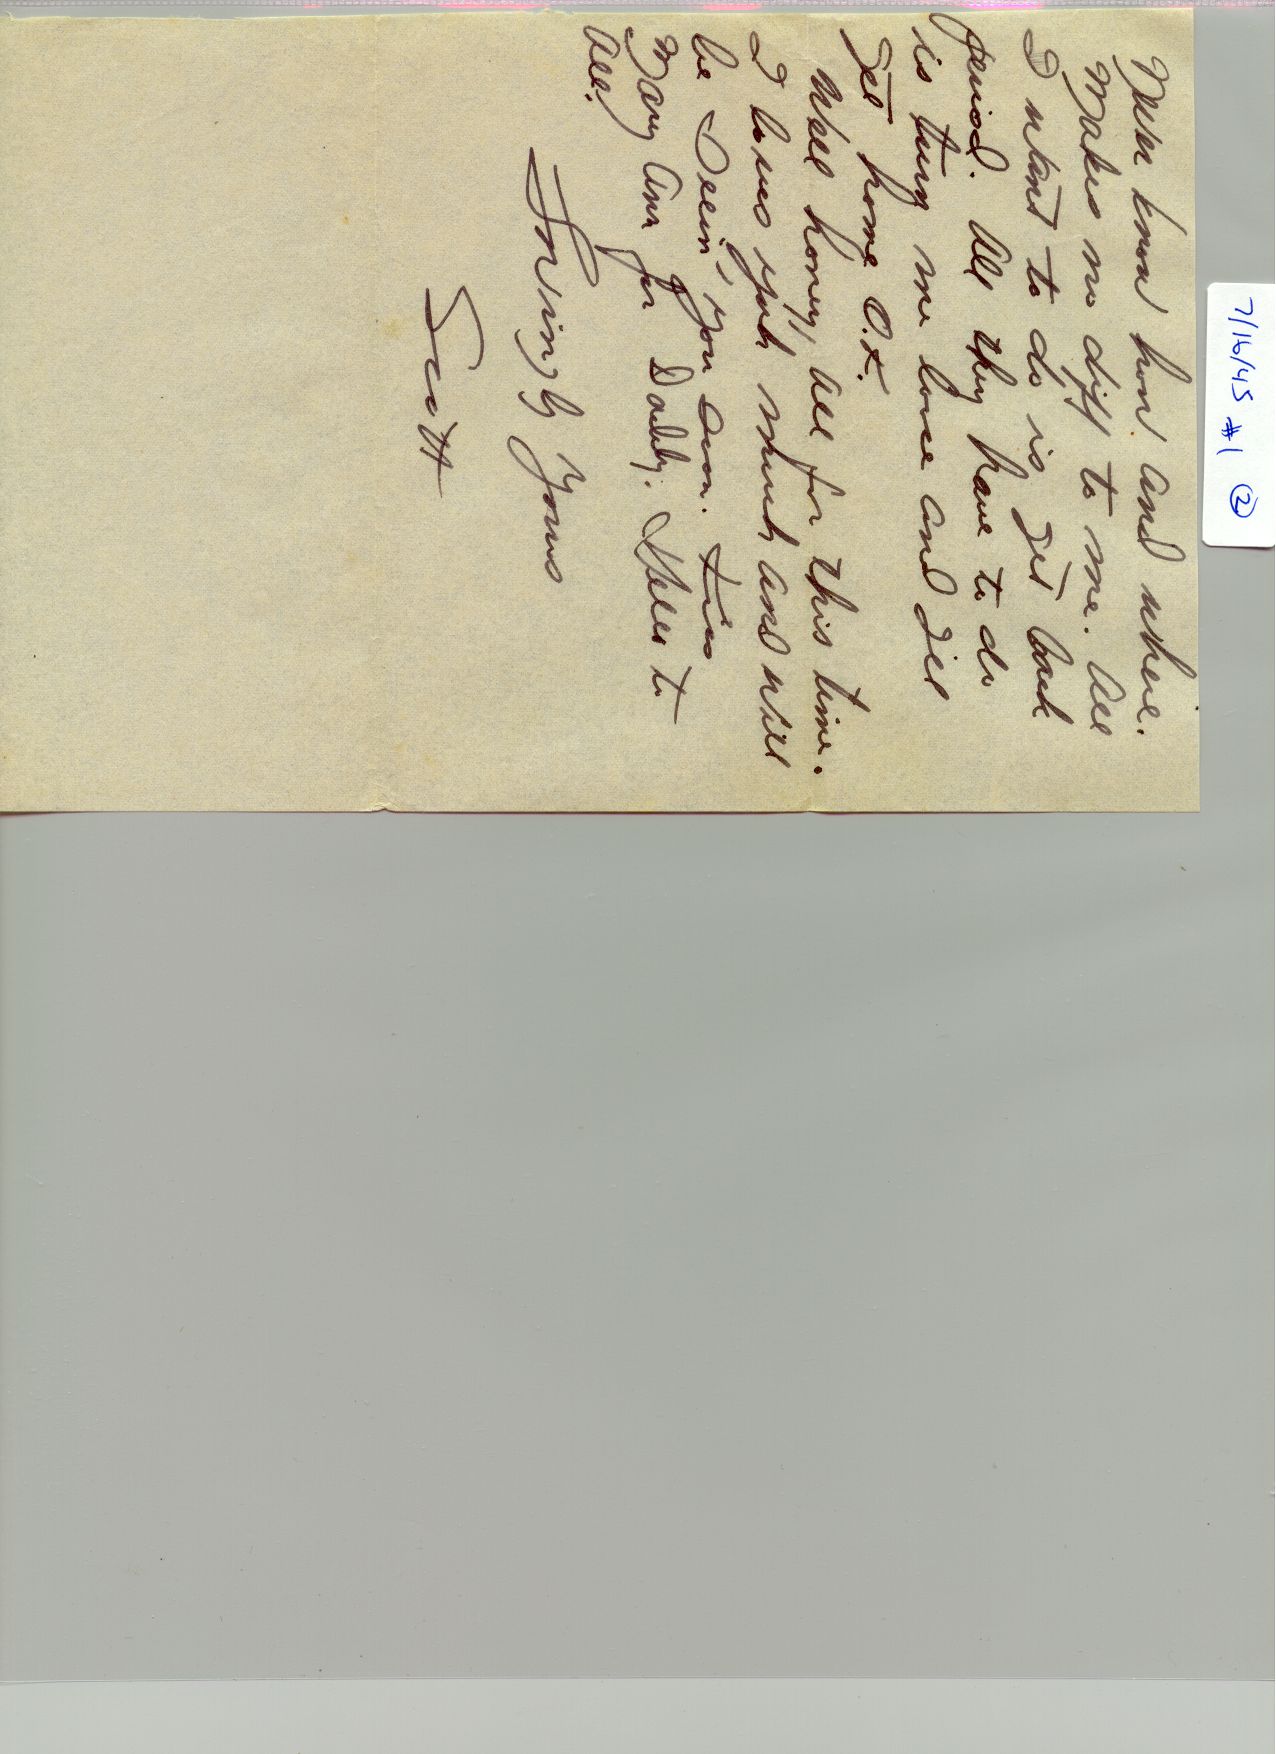 7/16/45 #1 ②
Never know how and where.
Makes no diff to me. All
I want to do is get back
period. All they have to do
is turn me loose and I'll
get home O.K.
Well honey, all for this time.
I loves yuh much and will
be Seein' you soon.
Mary Ann for Daddy. Hello to
all.
Lovingly Yours
Scott